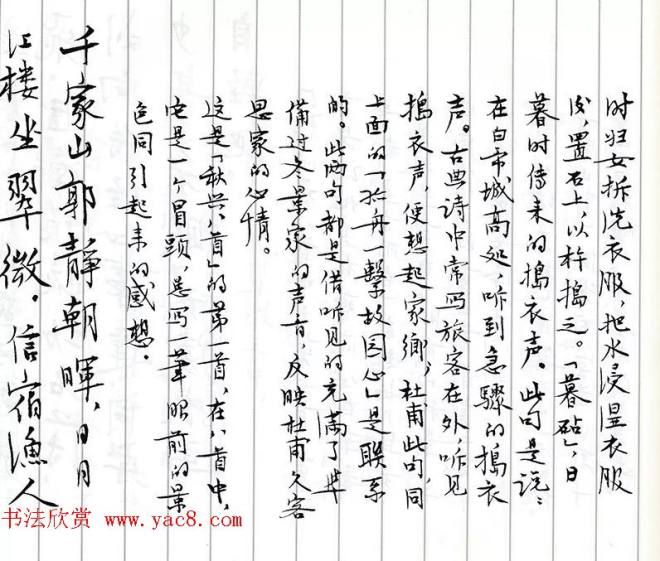 时妇女拆洗衣服，把水浸湿衣服
后，置石上，以杵捣之。「暮砧」，日
暮时传来的搗衣声。此句是说：
在白帝城高处，听到急驟的搗衣
声。古典诗中常写旅客在外，听见
搗衣声，便想起家鄉，杜甫此句，同
上面的「孤舟一繫故园心」是联系
的。此两句都是借听见的充满了準
備过冬景象的声音，反映杜甫久客
思家的心情。
这是「秋兴八首」的第一首，在八首中，
它是一个冒头，总写一筆眼前的景
色同引起来的感想．
千家山郭静朝暉，日日
江楼坐翠微。信宿渔人
书法欣赏 www.yac8.com